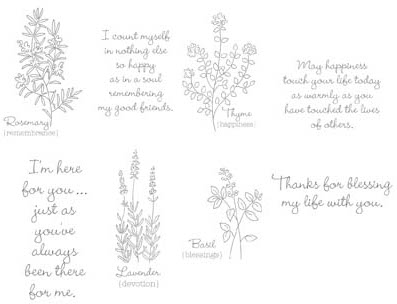 I count myself
in nothing else
so happy
as in a soul
remembering
my good friends.
Rosemary
{remembrance}
Thyme
{happiness}
May happiness
touch your life today
as warmly as you
have touched the lives
of others.
I'm here
for you...
just as
you've
always
been there
for me.
Lavender
{devotion}
Basil
{blessings}
Thanks for blessing
my life with you.